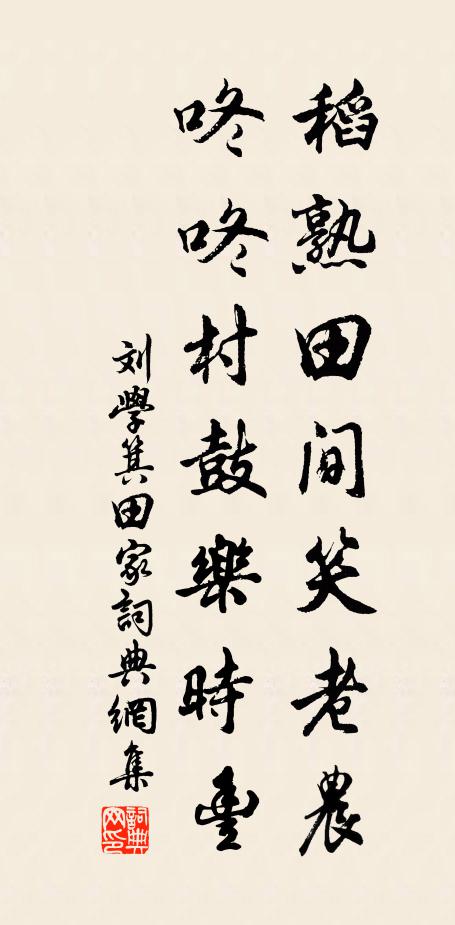 稻熟田间笑老農
咚咚村鼓樂時豐
刘學箕田家詞典網集
詞典网印